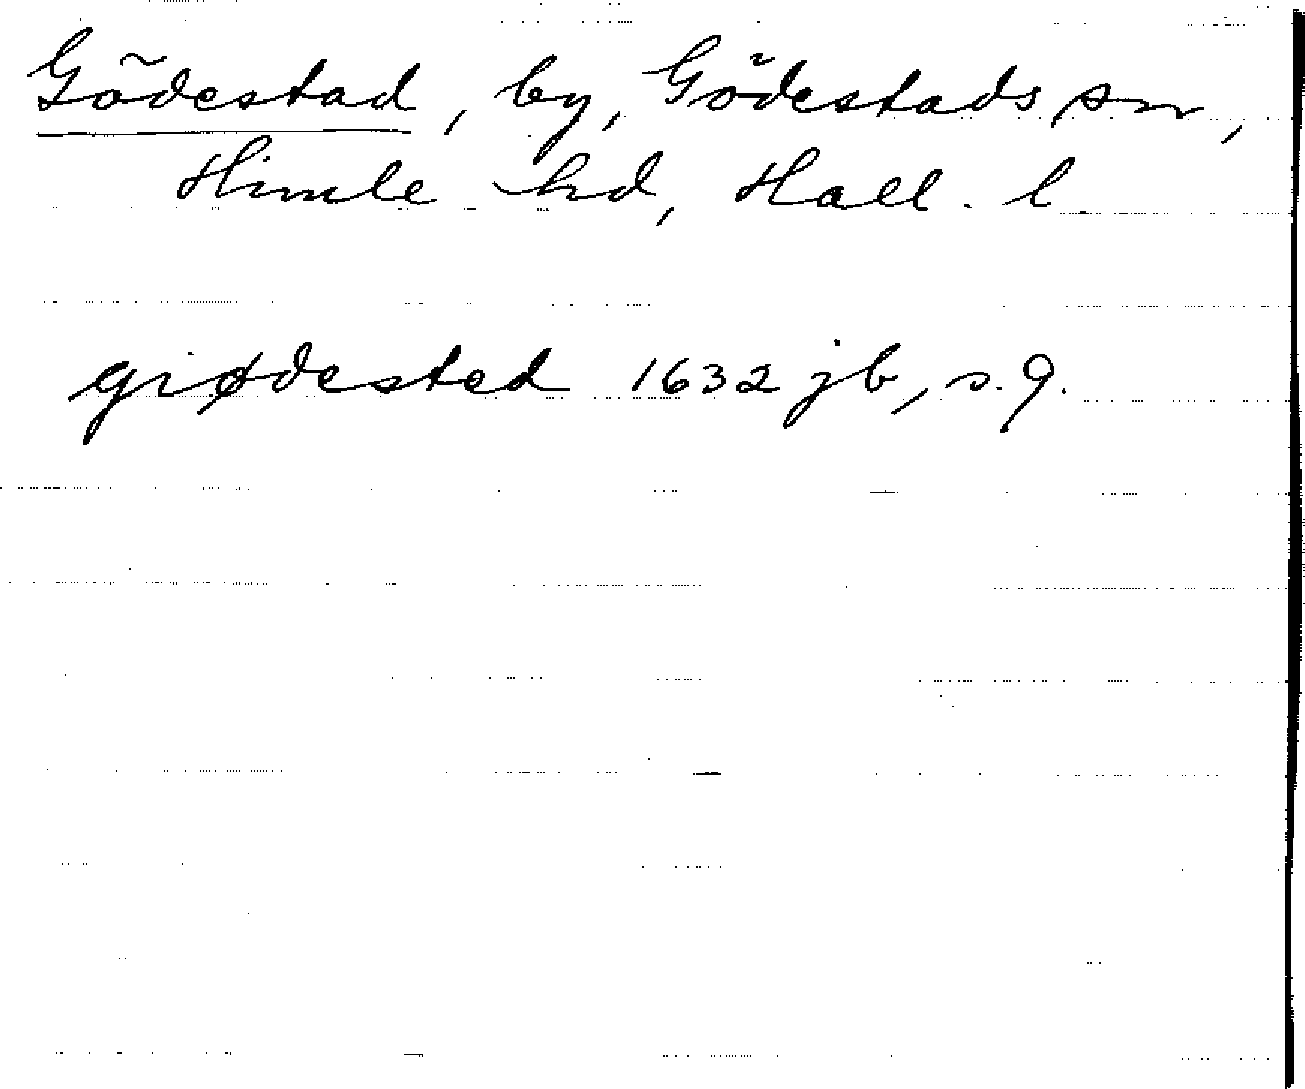 Gödestad, by, Gödestads sn,
Himle hd, Hall. l
giødested 1632 jb, s. 9.